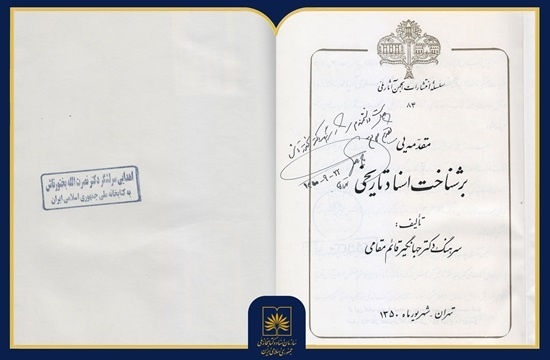 سلسلهٔ انتشارات انجمن آثار ملی
۸۳
مقدمه‌یی
بر شناخت اسناد تاریخی
تألیف:
سرهنگ دکتر جهانگیر قائم مقامی
تهران - شهریورماه ۱۳۵۰
اهدایی سرلشکر دکتر نصرت الله بختورتاش
به کتابخانه ملی جمهوری اسلامی ایران
سازمان اسناد و کتابخانه ملی
جمهوری اسلامی ایران